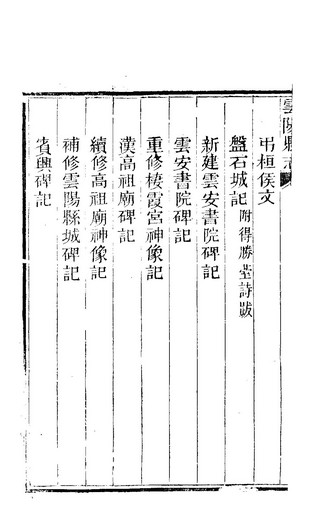 雲陽縣志
弔桓侯文
盤石城記附得勝臺詩跋
新建雲安書院碑記
雲安書院碑記
重修棲霞宮神像記
漢高祖廟碑記
續修高祖廟神像記
補修雲陽縣城碑記
賓興碑記